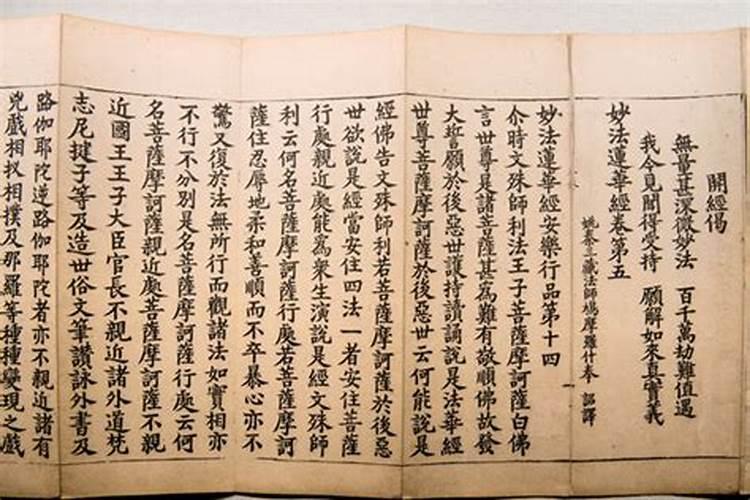 開經偈
無量甚深微妙法　百千萬劫難值遇
我今見聞得受持　願解如來真實義
妙法蓮華經卷第五
姚秦三藏法師鳩摩羅什奉　詔譯
妙法蓮華經安樂行品第十四
尒時文殊師利法王子菩薩摩訶薩白佛
言世尊是諸菩薩甚爲難有敬順佛故發
大誓願於後惡世護持讀誦說是法華經
世尊菩薩摩訶薩於後惡世云何能說是
經佛告文殊師利若菩薩摩訶薩於後惡
世欲說是經當安住四法一者安住菩薩
行處親近處能爲衆生演說是經文殊師
利云何名菩薩摩訶薩行處若菩薩摩訶
薩住忍辱地柔和善順而不卒暴心亦不
驚又復於法無所行而觀諸法如實相亦
不行不分別是名菩薩摩訶薩行處云何
名菩薩摩訶薩親近處菩薩摩訶薩不親
近國王王子大臣官長不親近諸外道梵
志尼揵子等及造世俗文筆讚詠外書及
路伽耶陀逆路伽耶陀者亦不親近諸有
兇戲相扠相撲及那羅等種種變現之戲